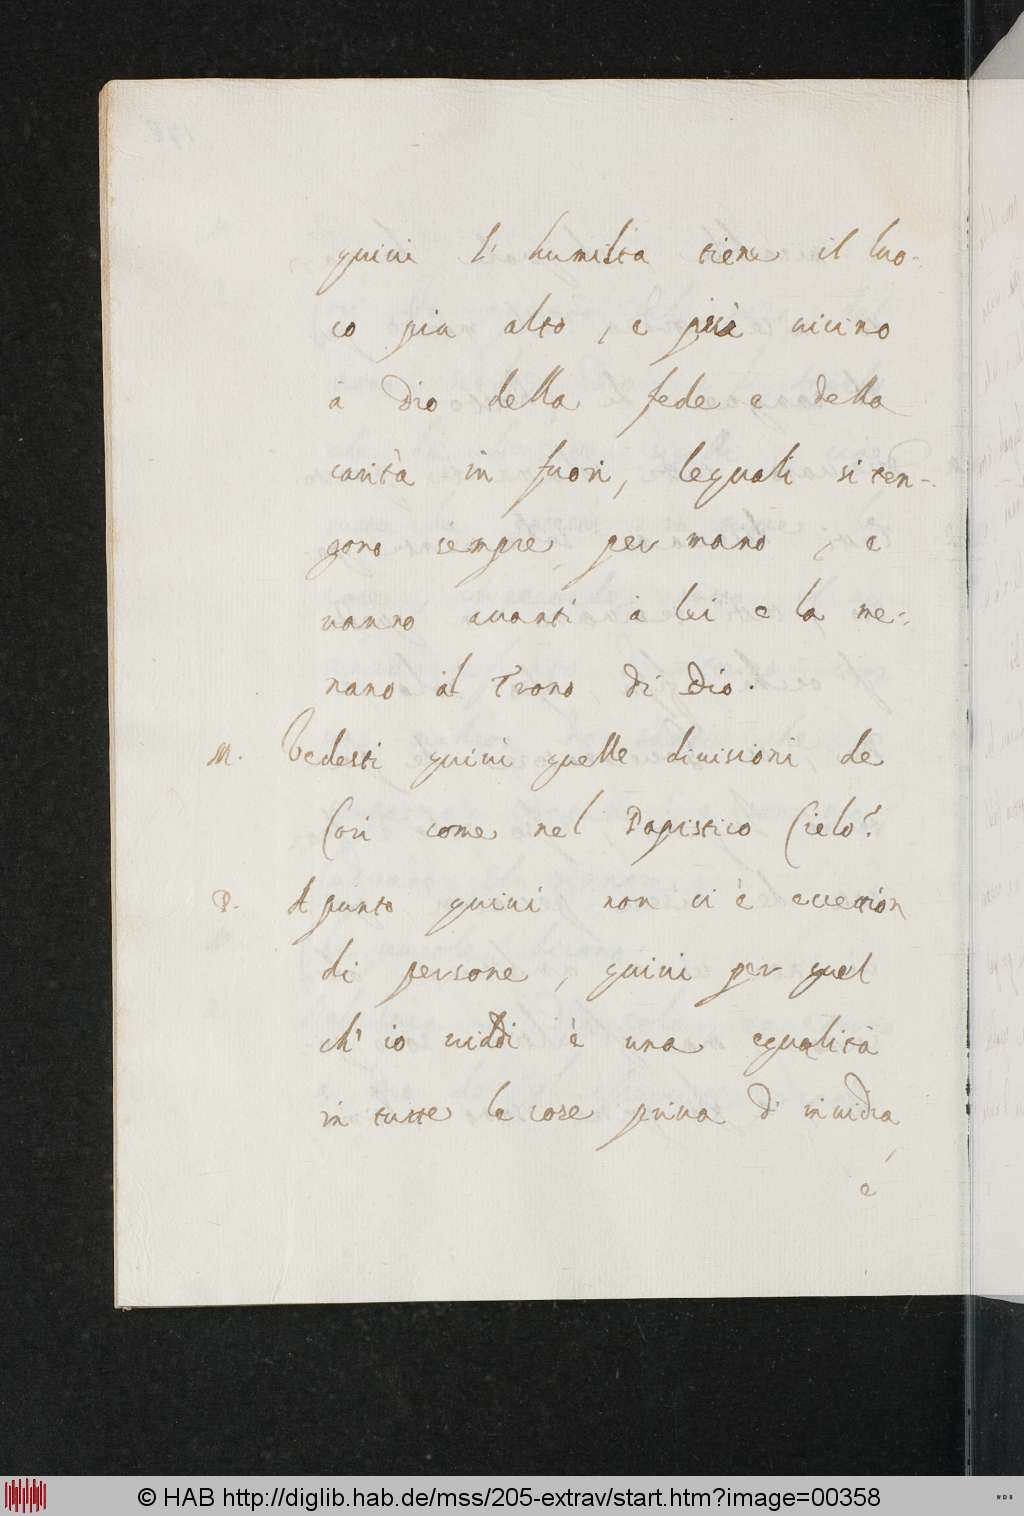 quiui l' humilta tiene il luo-
co piu alto, e più uicino
à Dio della fede e della
carità in fuori, lequali si ten-
gono sempre per mano, e
uanno auanti à lei e la me-
nano al Trono di Dio.
M. Vedesti quiui quelle diuisioni de
Cori come nel Papistico Cielo?
P. Apunto quiui non ui è eccettion
di persone, quiui per quel
ch' io uiddi è una egualità
in tutte le cose priua d' inuidia,
e
© HAB http://diglib.hab.de/mss/205-extrav/start.htm?image=00358